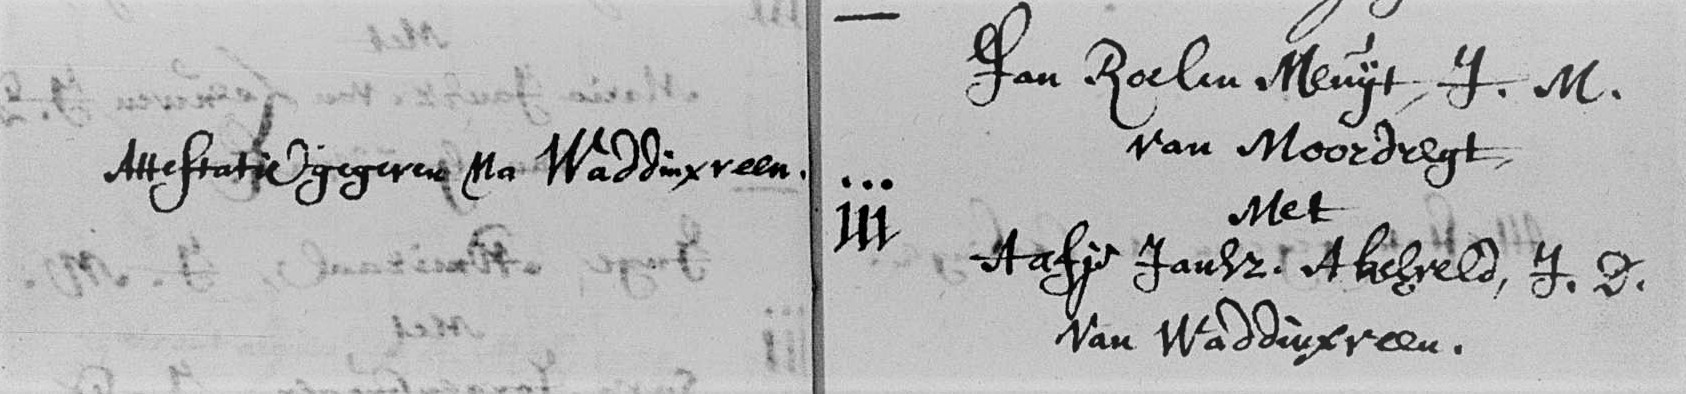 Attestatie gegeven Na Waddinxveen.
Jan Roelen Meuÿt, J. M.
van Moordregt,
iii
Met
Aafje Jansz. Akelveld, J. D.
Van Waddinxveen.